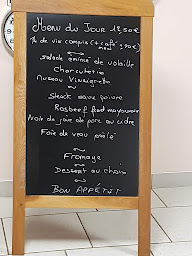 Menu du Jour 13,50€
¼ de vin compris (+ café 1,90€)
~
salade émincé de volaille
Charcuterie
Museau Vinaigrette
~
Steack sauce poivre
Rosbeef froid mayonnaise
Noix de joue de porc au cidre
Foie de veau persillé
~
Fromage
~
Dessert au choix
~
BON APPÉTIT